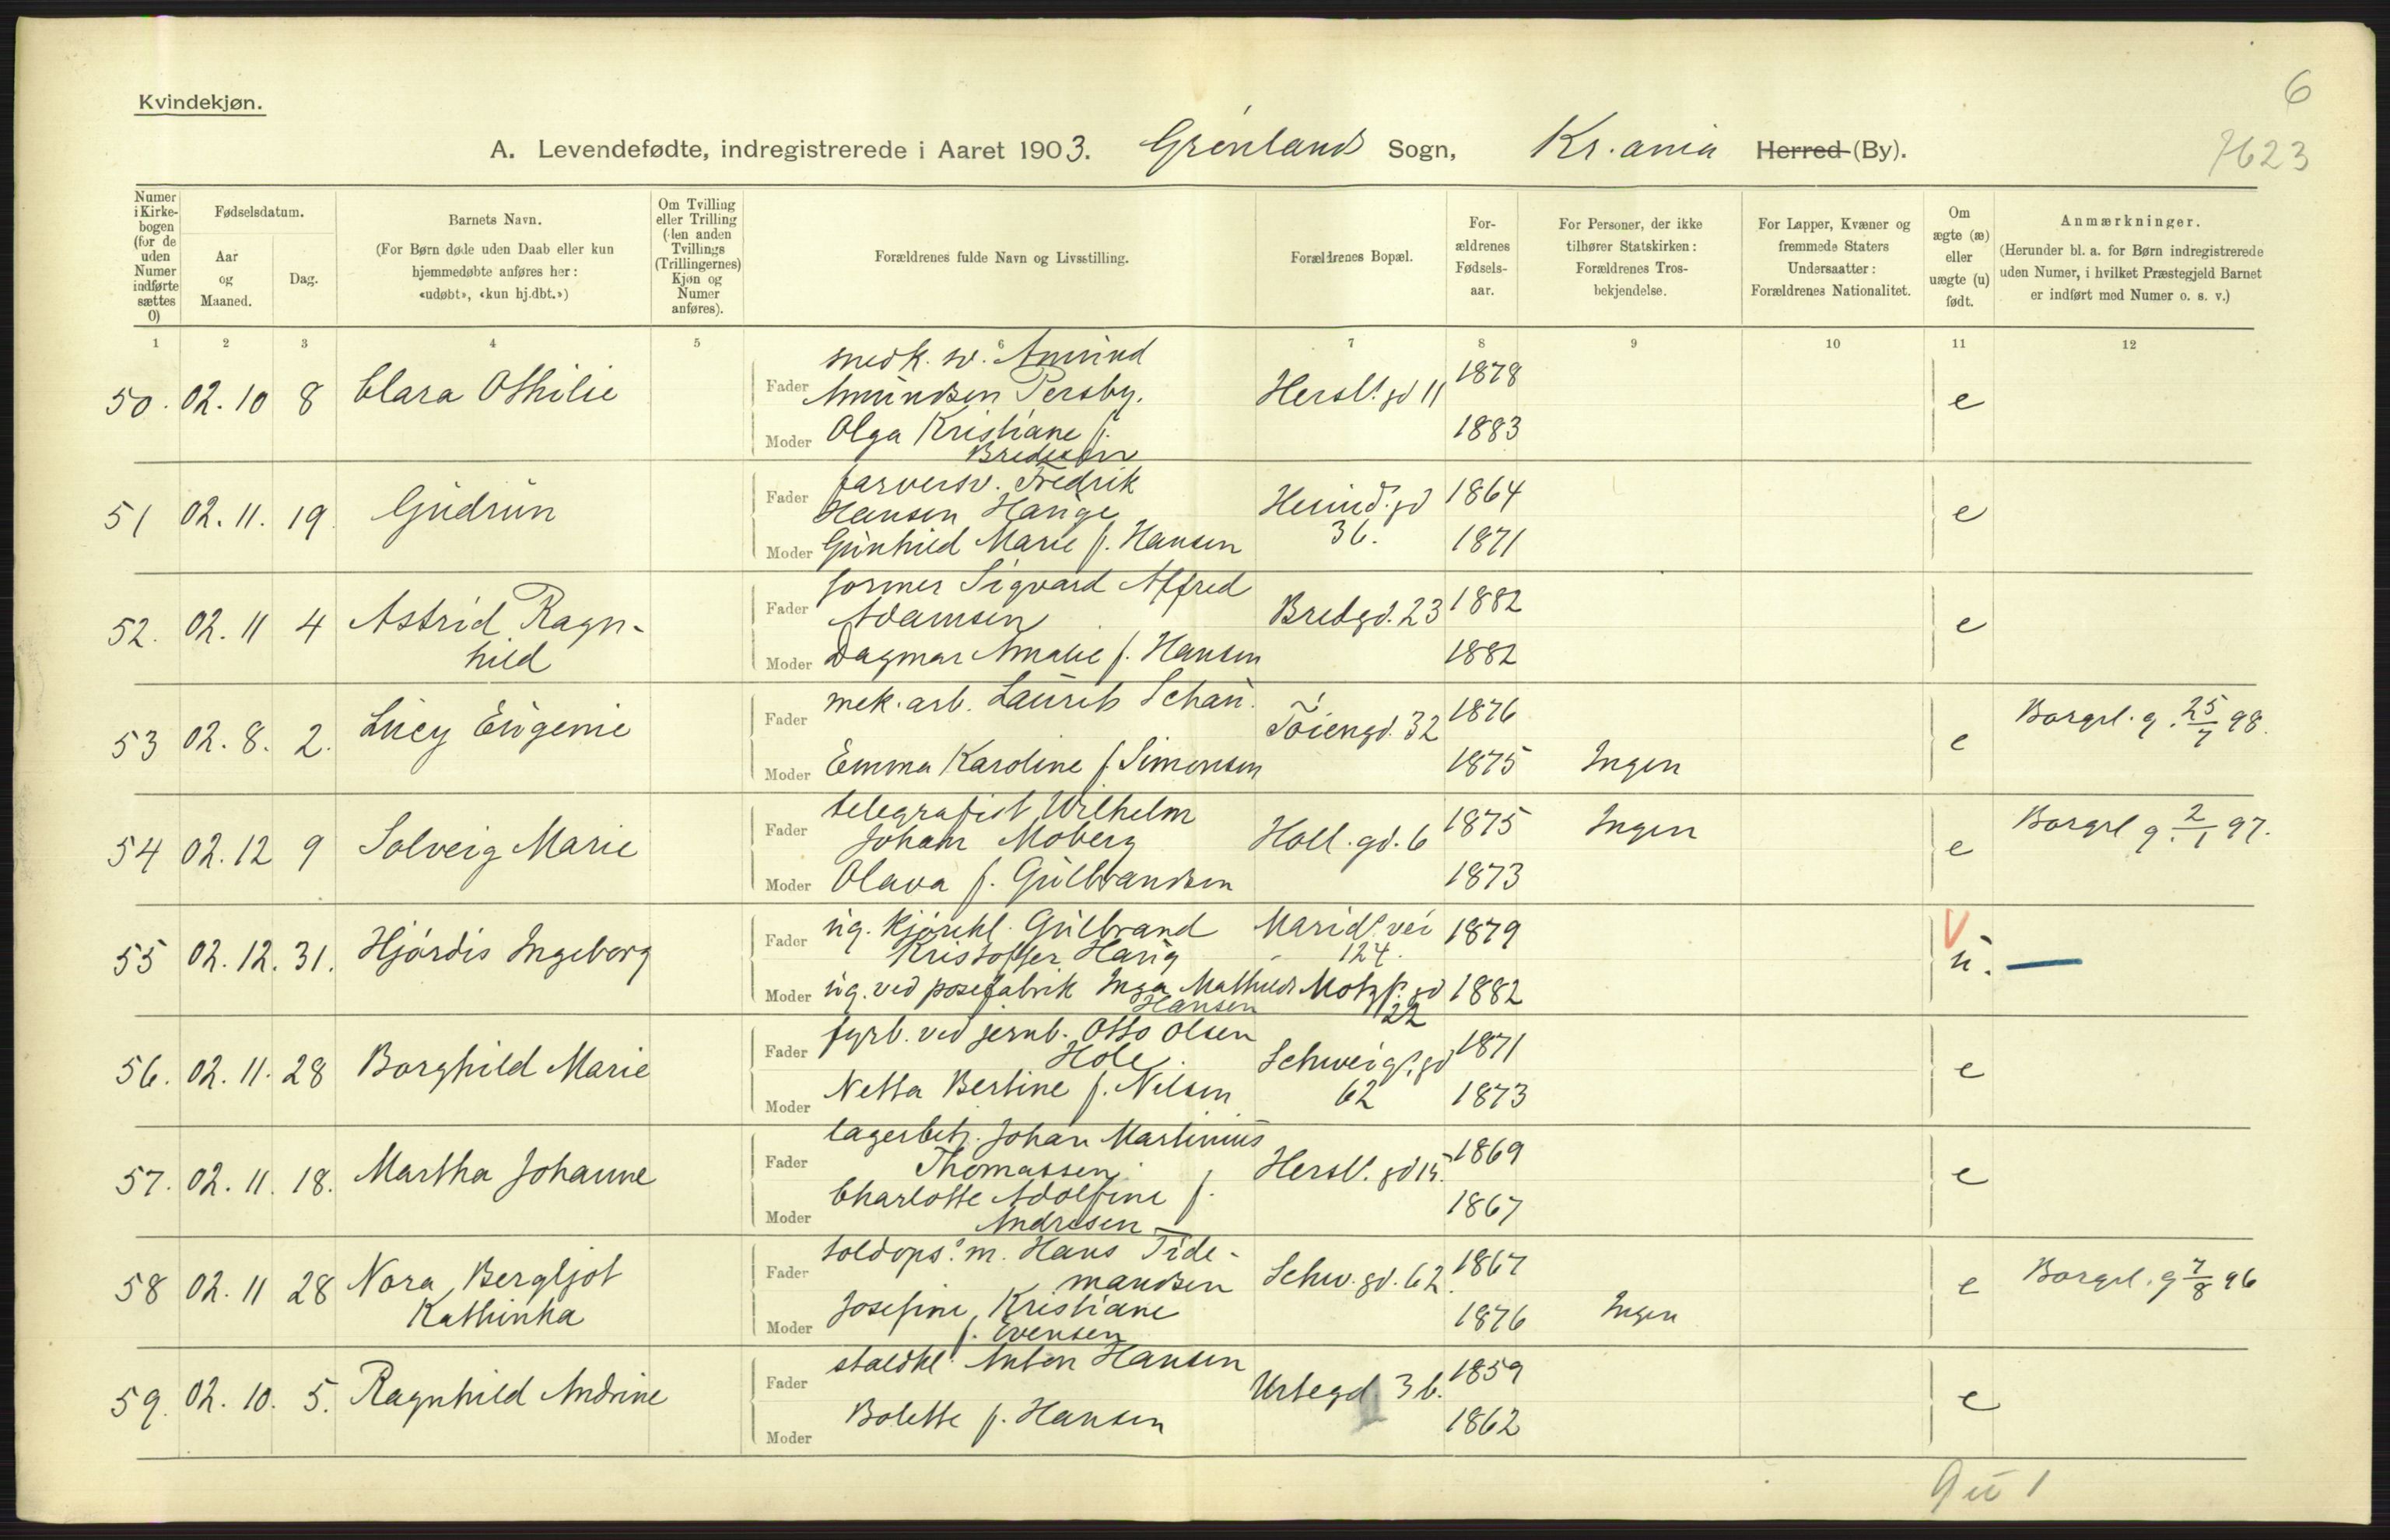 6
Kvindekjøn.
A. Levendefødte, indregistrerede i Aaret 1903. Grønlands Sogn, Kr.ania Herred (By).
7623
Numer i Kirke-bogen (for de uden Numer indførte sættes 0)
Fødselsdatum.
Aar og Maaned.
Dag.
Barnets Navn.
(For Børn døde uden Daab eller kun hjemmedøbte anføres her: «udøbt», «kun hj.dbt.»)
Om Tvilling eller Trilling (den anden Tvillings (Trillingernes) Kjøn og Numer anføres).
Forældrenes fulde Navn og Livsstilling.
Forældrenes Bopæl.
For-ældrenes Fødsels-aar.
For Personer, der ikke tilhører Statskirken: Forældrenes Tros-bekjendelse.
For Lapper, Kvæner og fremmede Staters Undersaatter: Forældrenes Nationalitet.
Om ægte (æ) eller uægte (u) født.
Anmærkninger.
(Herunder bl. a. for Børn indregistrerede uden Numer, i hvilket Præstegjeld Barnet er indført med Numer o. s. v.)
1 2 3 4 5 6 7 8 9 10 11 12
50. 02. 10 8 Clara Othilie
Fader snedk. sv. Amund
Amundsen Persby. Hersl. gd 11 1878 e
Moder Olga Kristiane f. 1883
Bredesen
51 02. 11. 19. Gudrun
Fader farversv. Fredrik
Hansen Hauge Heimd. gd 1864 e
Moder Gunhild Marie f. Hansen 36. 1871
52. 02. 11 4 Astrid Ragn-
hild
Fader former Sigvard Alfred
Adamsen Bredgd. 23 1882 e
Moder Dagmar Amalie f. Hansen 1882
53 02. 8. 2. Lucy Eugenie
Fader mek. arb. Laurits Schau. Tøiengd. 32 1876 e Borgerl. g. 25/7 98.
Moder Emma Karoline f. Simonsen 1875 Ingen
54 02. 12 9 Solveig Marie
Fader telegrafist Wilhelm
Johan Moberg Holl. gd. 6 1875 Ingen e Borgerl g. 2/1 97.
Moder Olava f. Gulbrandsen 1873
55 02. 12. 31. Hjørdis Ingeborg
Fader ug. kjørekl. Gulbrand Marid. vei 1879 V
Kristoffer Haug 124. u. —
Moder ug. ved posefabrik Inga Mathilde Motzf. gd 1882
Hansen 22
56. 02. 11. 28 Borghild Marie
Fader fyrb. ved jernb. Otto Olsen
Hole. Schweig. gd 1871 e
Moder Netta Bertine f. Nilsen 62 1873
57. 02. 11. 18. Martha Johanne
Fader lagerbetj. Johan Martinius
Thomassen. Hersl. gd 15. 1869 e
Moder Charlotte Adolfine f. 1867
Andresen
58 02. 11 28 Nora Bergljot
Kathinka
Fader toldops. m. Hans Tide-
mandsen Schw. gd. 62. 1867 e Borgerl. g 7/8 96
Moder Josefine Kristiane 1876 Ingen
f. Evensen
59. 02. 10. 5. Ragnhild Andrine
Fader staldkl. Anton Hansen Urtegd. 36. 1859 e
Moder Bolette f. Hansen 1862
9 u 1